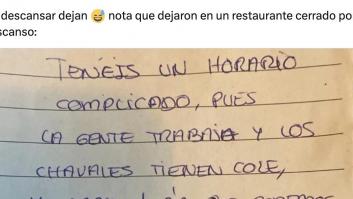 descansar dejan 😅 nota que dejaron en un restaurante cerrado po
scanso:
TENÉIS UN HORARIO
COMPLICADO, PUES
LA GENTE TRABAJA Y LOS
CHAVALES TIENEN COLE,